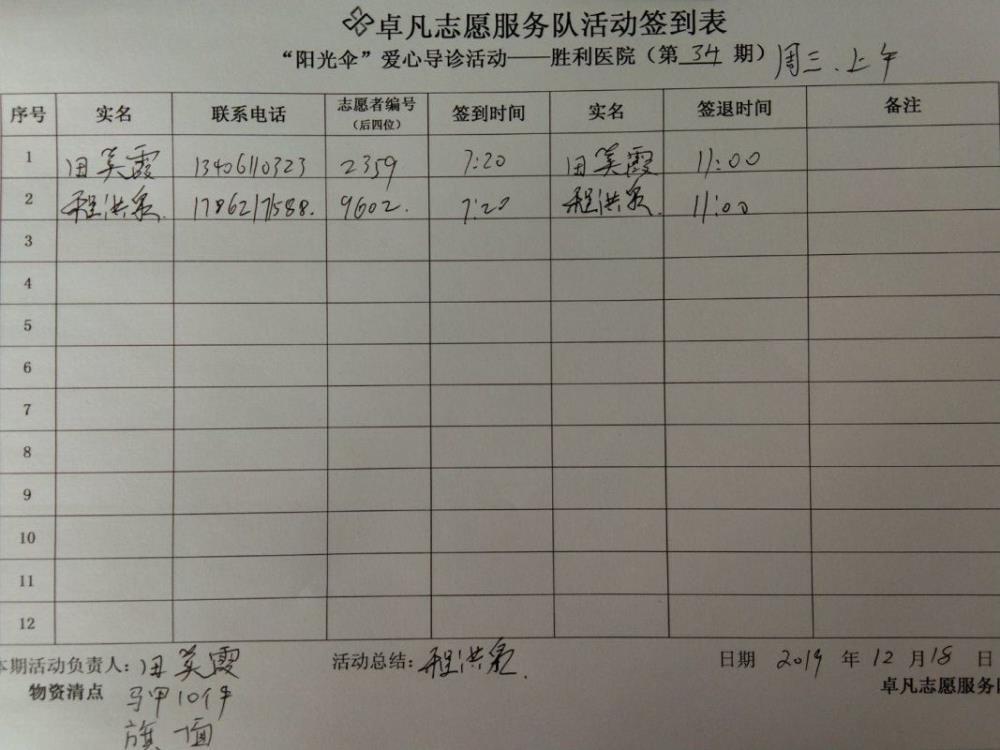 卓凡志愿服务队活动签到表
“阳光伞”爱心导诊活动——胜利医院（第 34 期）周三.上午
序号 实名 联系电话 志愿者编号（后四位） 签到时间 实名 签退时间 备注
1 田英霞 13406110323 2359 7:20 田英霞 11:00
2 程洪泉. 17862171588. 9602. 7:20 程洪泉. 11:00
3
4
5
6
7
8
9
10
11
12
本期活动负责人：田英霞 活动总结：程洪泉. 日期 2019 年 12 月 18 日
物资清点 马甲10件 卓凡志愿服务队
旗 面